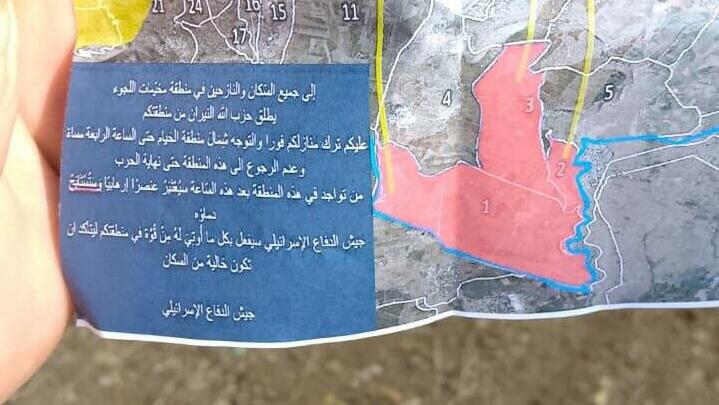 21
24
16
15
17
11
4
3
5
2
1
إلى جميع السكان والنازحين في منطقة مخيمات اللجوء
يطلق حزب الله النيران من منطقتكم
عليكم ترك منازلكم فورا والتوجه شمال منطقة الخيام حتى الساعة الرابعة مساة
وعدم الرجوع الى هذه المنطقة حتى نهاية الحرب
من تواجد في هذه المنطقة بعد هذه الساعة سيُعتبَرُ عنصرًا إرهابيًا وستُستَبَاحُ
دماؤه
جيش الدفاع الإسرائيلي سيفعل بكل ما أُوتِيَ لَهُ مِنْ قُوَّة في منطقتكم ليتأكد ان
تكون خالية من السكان
جيش الدفاع الإسرائيلي